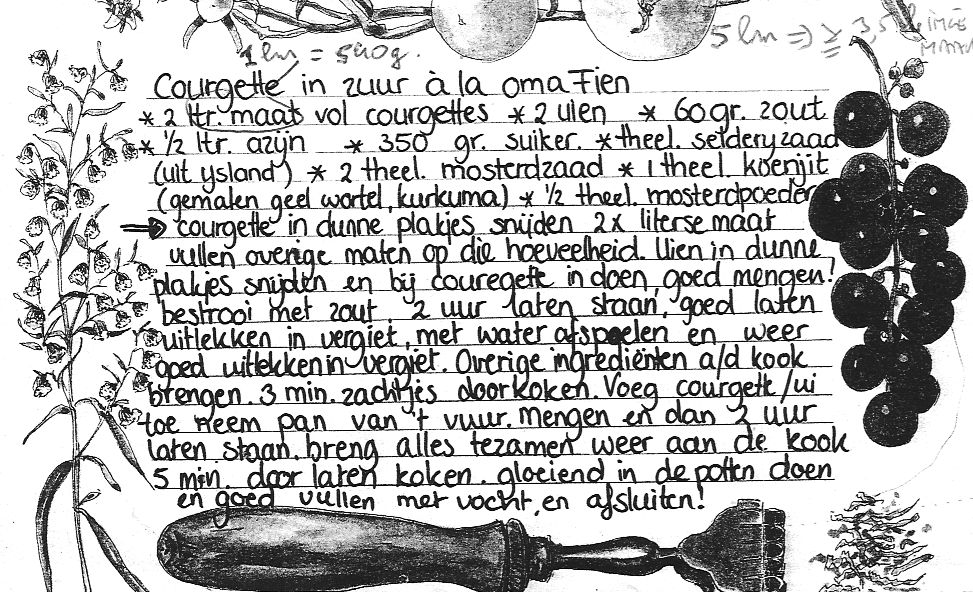 5 lm => ≥ 3,5 l
1 lm = 540g.
Courgette in zuur à la oma Fien
* 2 ltr. maat vol courgettes * 2 uien * 60 gr. zout
* ½ ltr. azijn * 350 gr. suiker. * theel. selderyzaad
(uit ysland) * 2 theel. mosterdzaad * 1 theel. koenjit
(gemalen geel wortel, kurkuma) * ½ theel. mosterdpoeder
⇒ courgette in dunne plakjes snijden 2x literse maat
vullen overige maten op die hoeveelheid. Uien in dunne
plakjes snijden en bij couregette in doen, goed mengen!
bestrooi met zout, 2 uur laten staan, goed laten
uitlekken in vergiet, met water afspoelen en weer
goed uitlekken in vergiet. Overige ingrediënten a/d kook
brengen. 3 min. zachtjes doorkoken. Voeg courgette /ui
toe neem pan van 't vuur. mengen en dan 2 uur
laten staan. breng alles tezamen weer aan de kook
5 min. door laten koken. gloeiend in de potten doen
en goed vullen met vocht, en afsluiten!